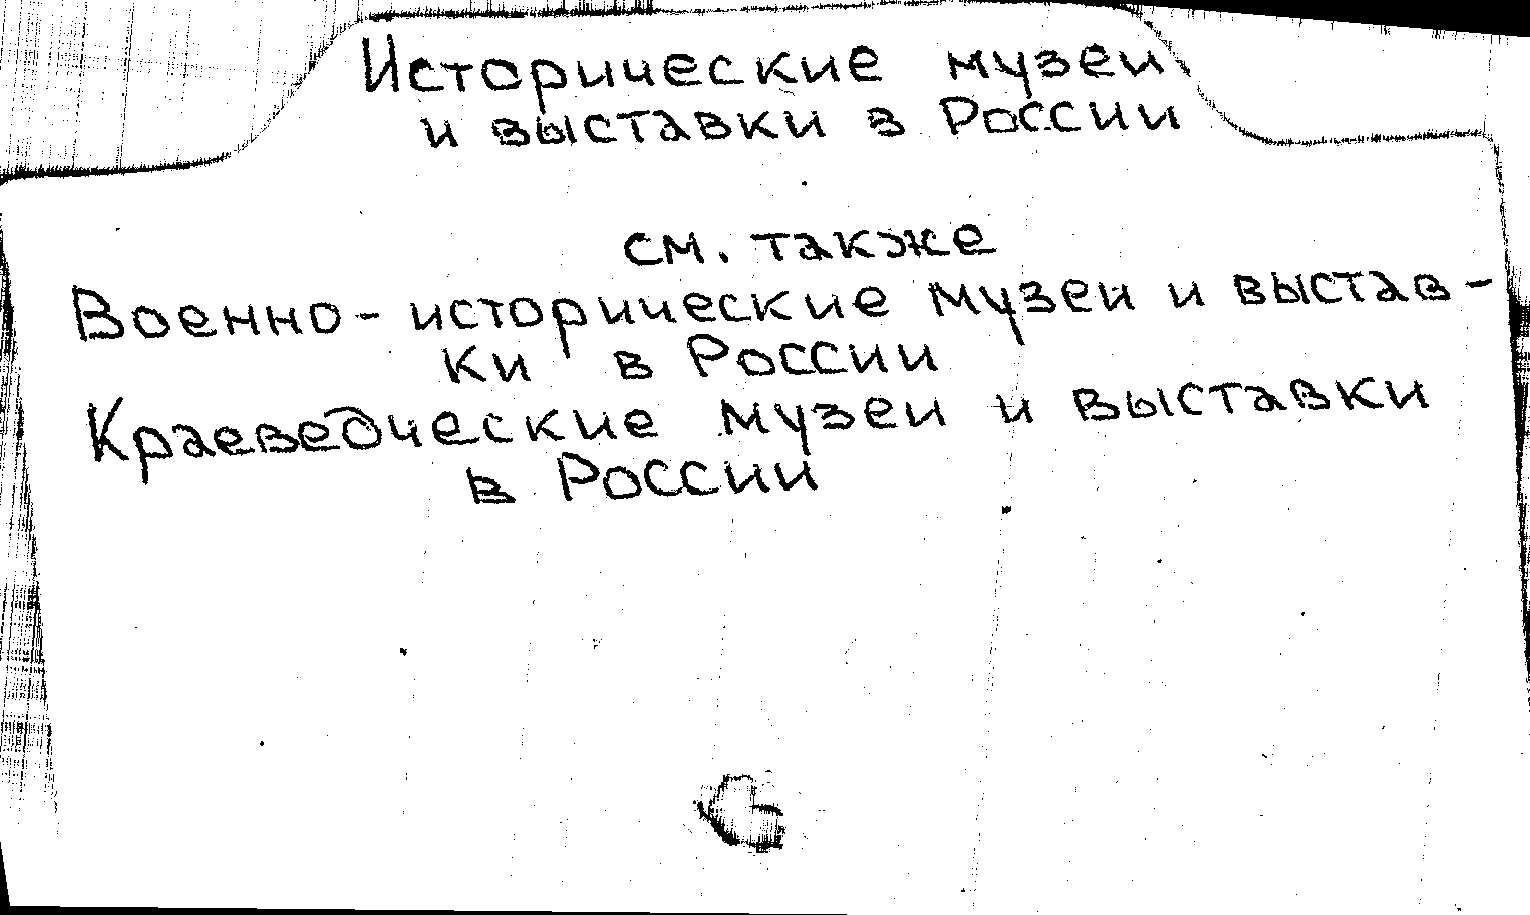 Исторические музеи
и выставки в России
см. также
Военно-исторические музеи и выстав-
ки в России
Краеведческие музеи и выставки
в России